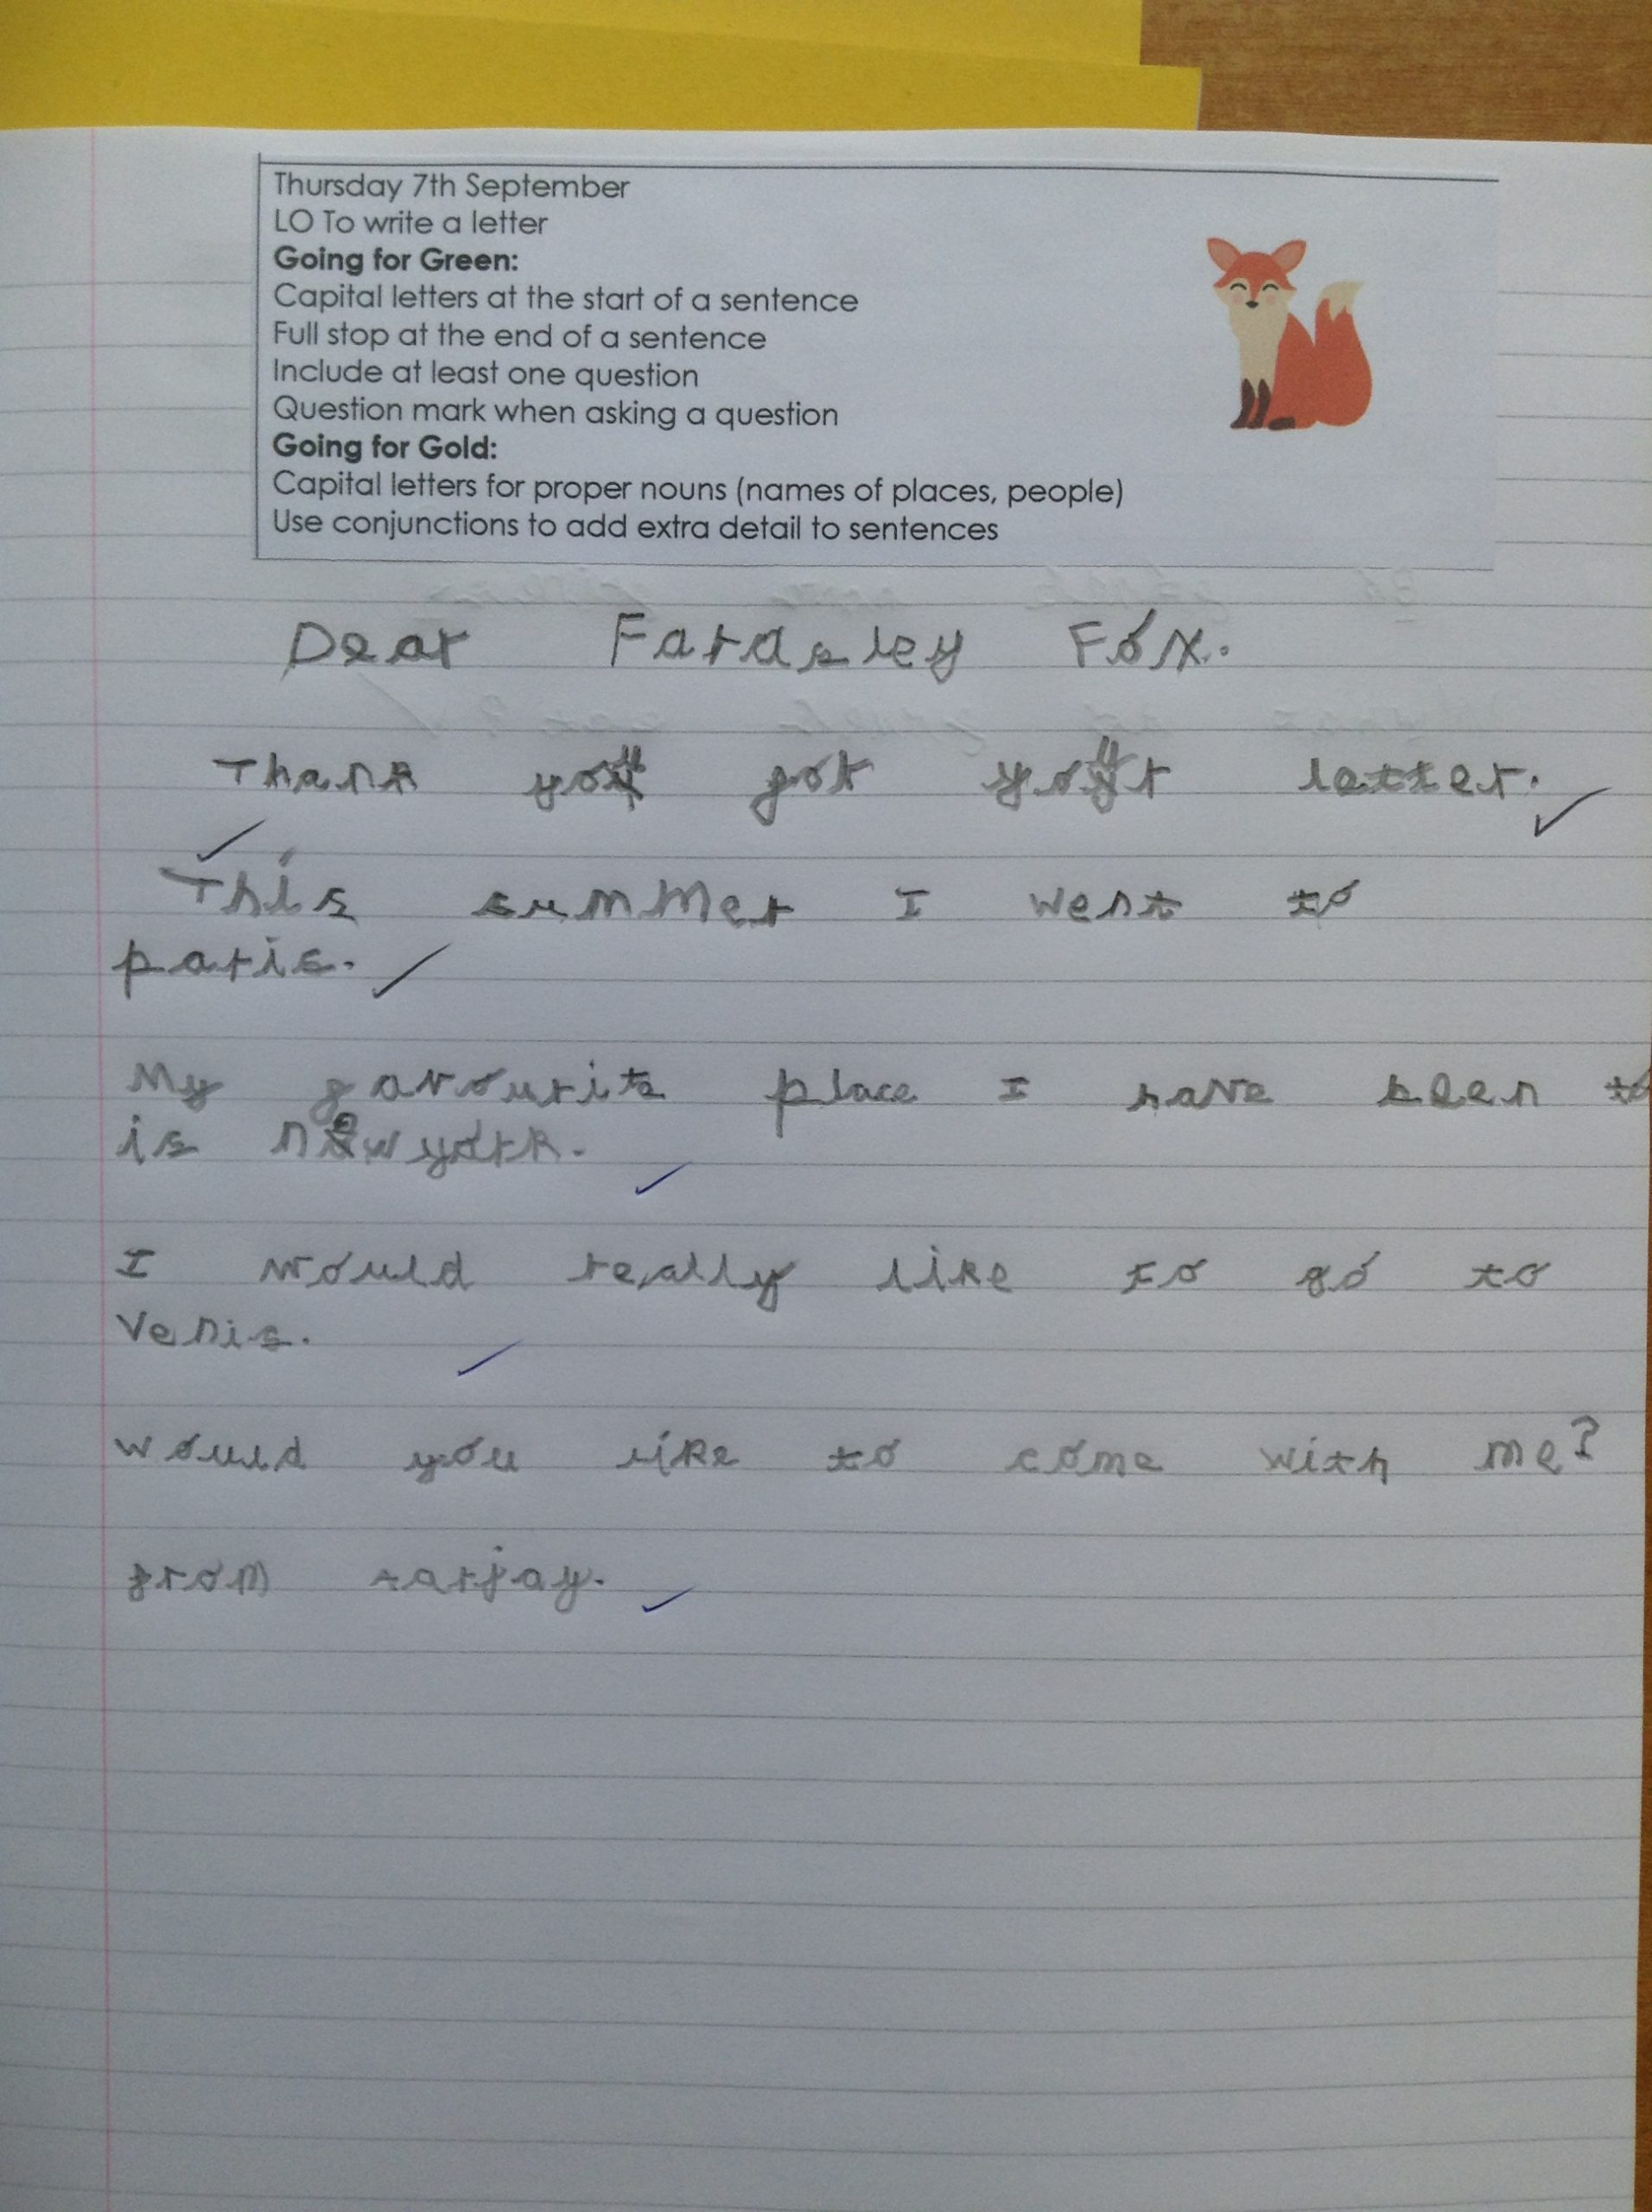 Thursday 7th September
LO To write a letter
Going for Green:
Capital letters at the start of a sentence
Full stop at the end of a sentence
Include at least one question
Question mark when asking a question
Going for Gold:
Capital letters for proper nouns (names of places, people)
Use conjunctions to add extra detail to sentences
Dear Fardsley Fox.
Thank you for your letter.
This summer I went to
paris.
My favourite place I have been to
is newyork.
I would really like to go to
Venis.
would you like to come with me?
from